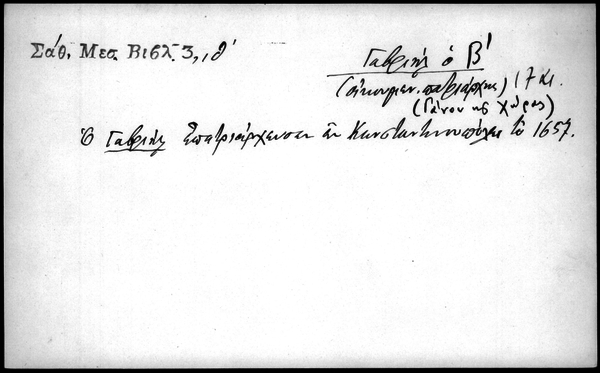 Σάθ. Μεσ. Βιβλ. 3, ιθ΄
Γαβριήλ ὁ Β΄
(οἰκουμεν. πατριάρχης) 17 αι.
(Γάνου κς Χώρας)
Ὁ Γαβριὴλ ἐπατριάρχευσεν ἐν Κωνσταντινουπόλει τῷ 1657.